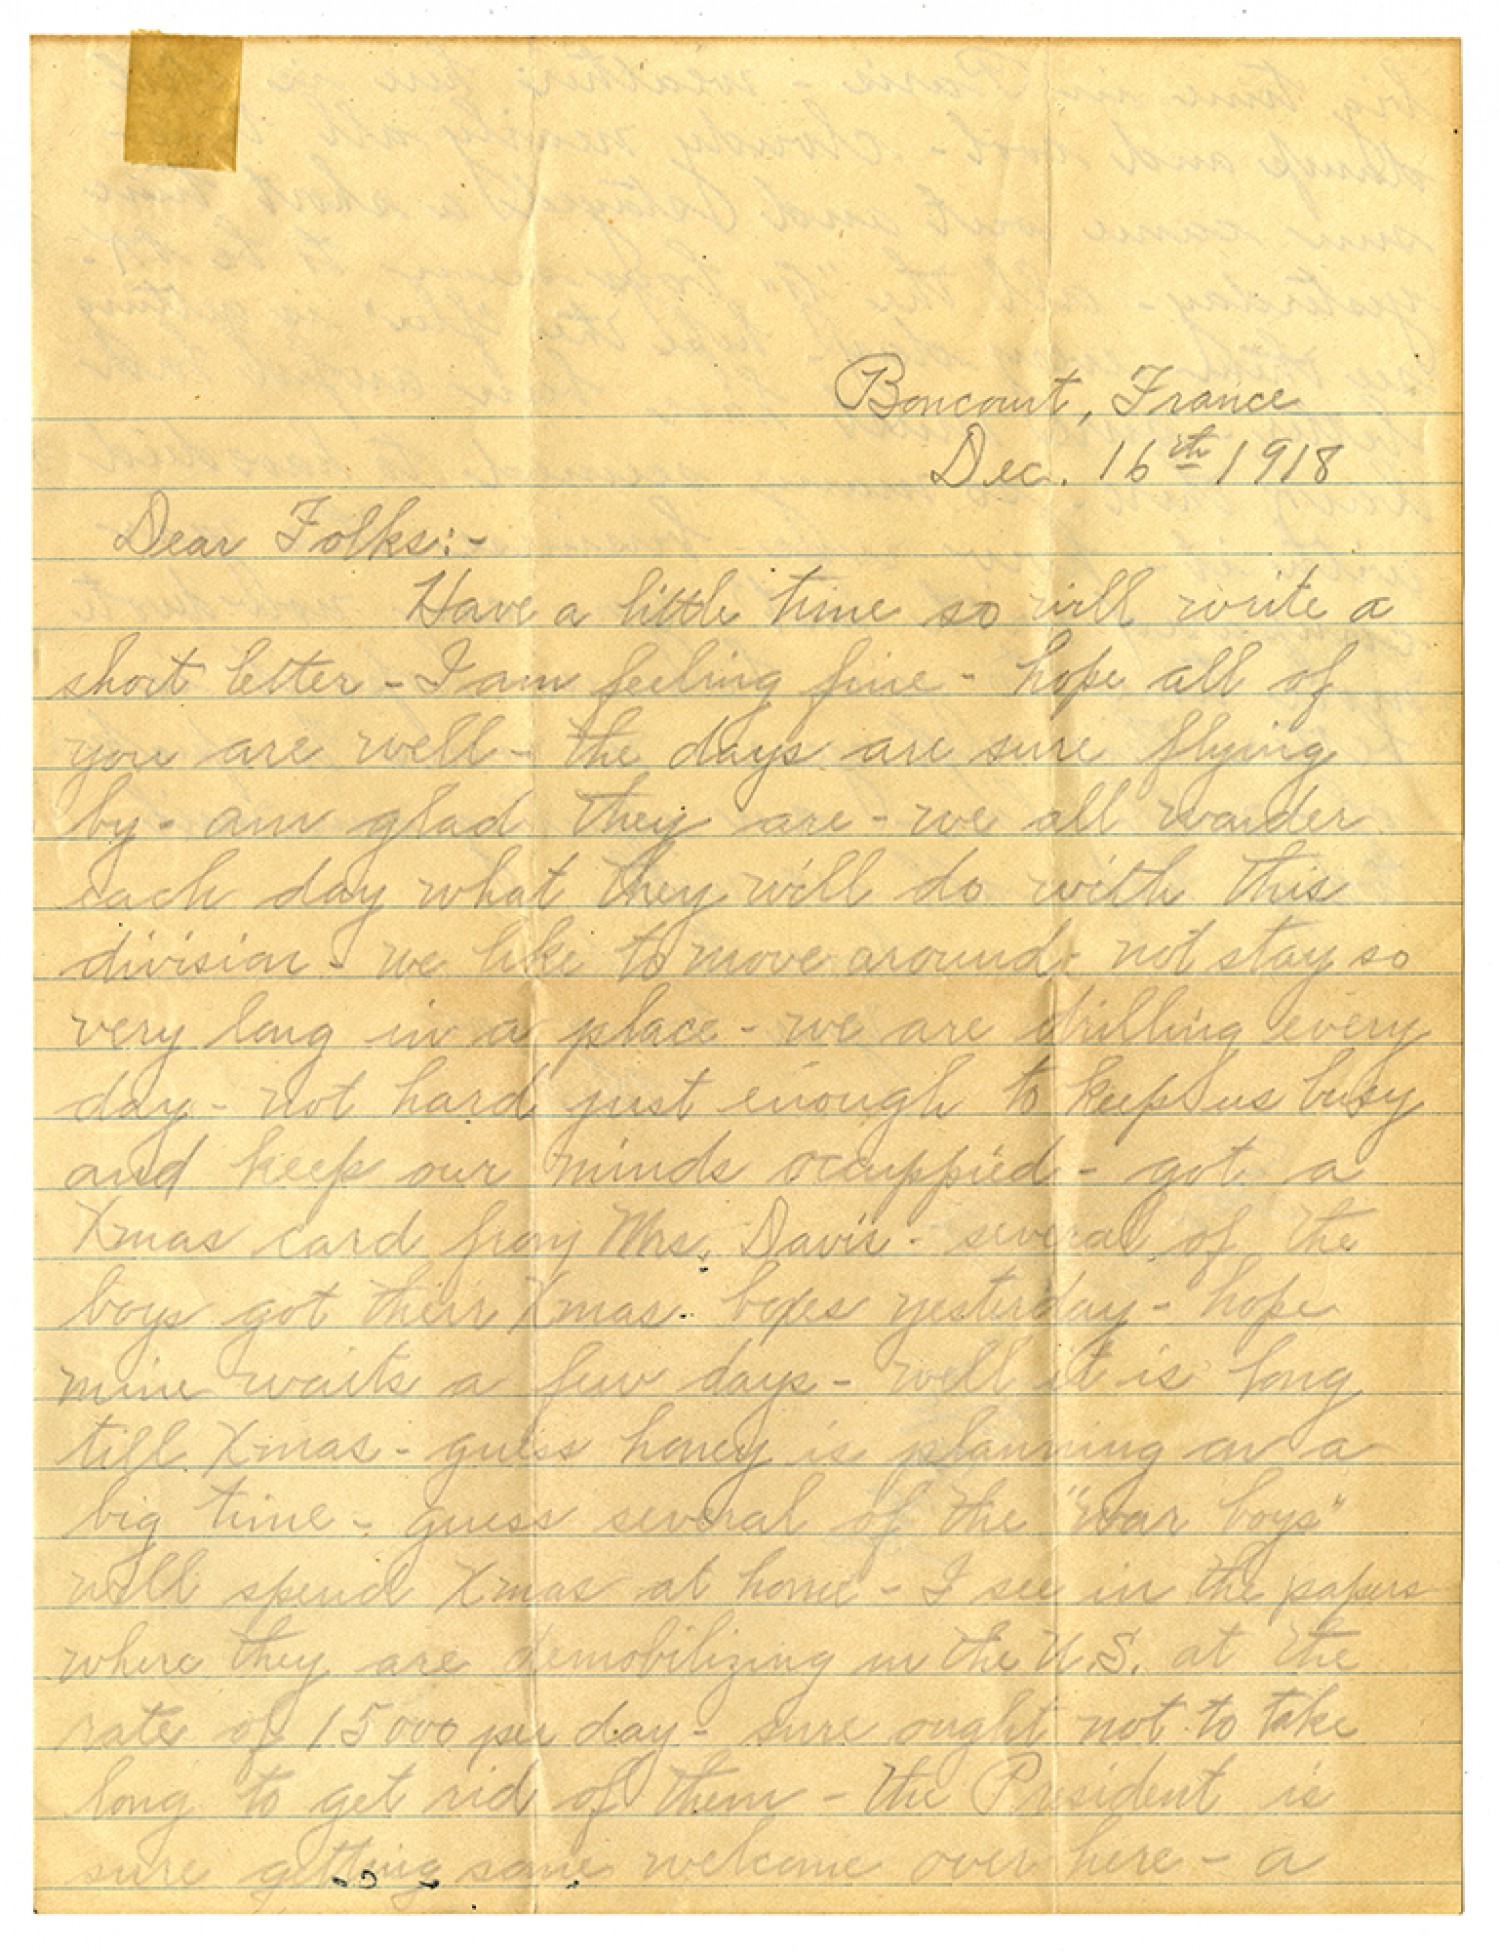 Boncourt, France
Dec. 16th 1918
Dear Folks:-
Have a little time so will write a
short letter - I am feeling fine - hope all of
you are well - the days are sure flying
by - am glad they are - we all wonder
each day what they will do with this
division - we like to move around - not stay so
very long in a place - we are drilling every
day - not hard just enough to keep us busy
and keep our minds occuppied - got a
Xmas card from Mrs. Davis - several of the
boys got their Xmas boxes yesterday - hope
mine waits a few days - well it is long
till Xmas - guess honey is planning on a
big time - guess several of the "war boys"
will spend Xmas at home - I see in the papers
where they are demobilizing in the U.S. at the
rate of 15000 per day - sure ought not to take
long to get rid of them - the President is
sure getting some welcome over here - a